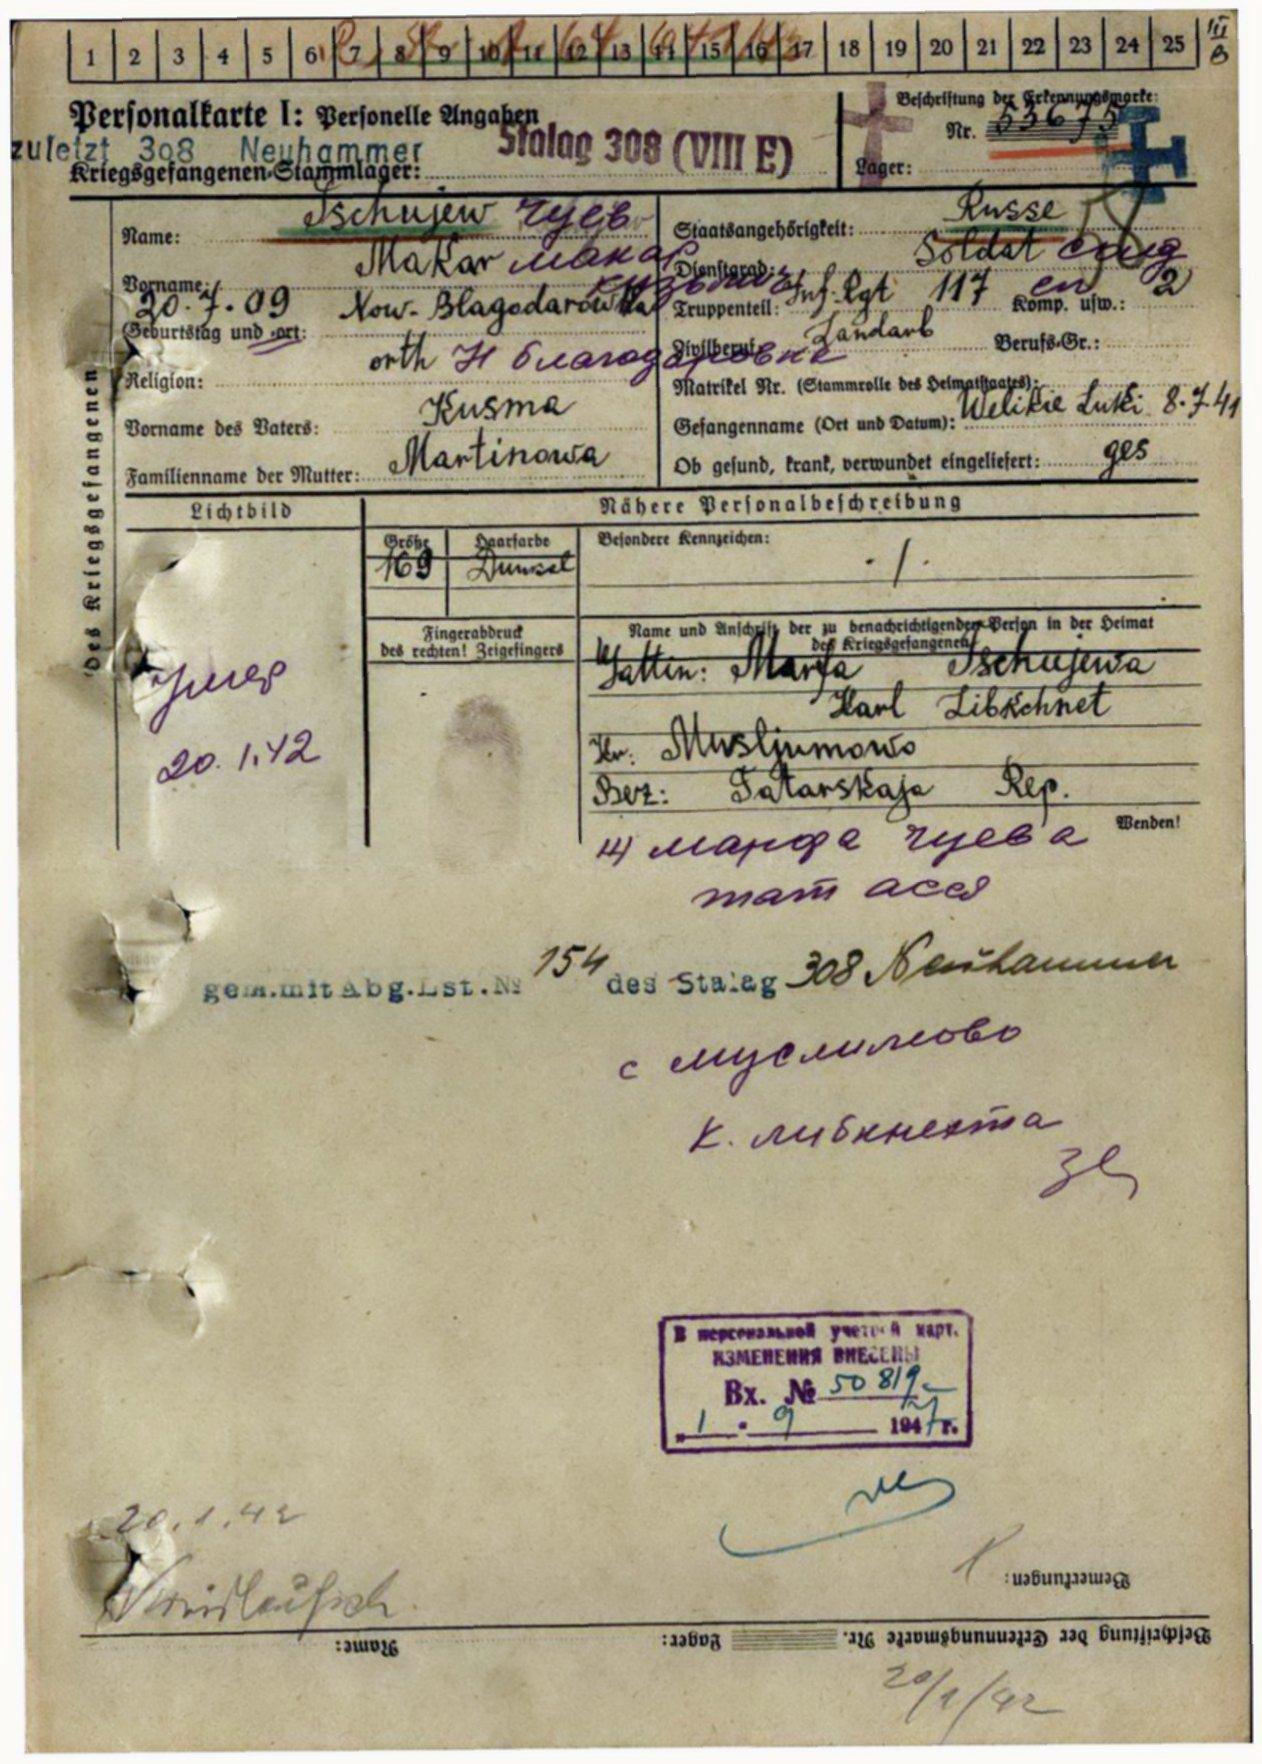 1 2 3 4 5 6 7 8 9 10 11 12 13 14 15 16 17 18 19 20 21 22 23 24 25
III B
Personalkarte I: Personelle Angaben
zuletzt 308 Neuhammer
Stalag 308 (VIII E)
Kriegsgefangenen-Stammlager:
Beschriftung der Erkennungsmarke:
Nr. 53675
Lager:
Des Kriegsgefangenen
Name: Tschujew Чуев
Vorname: Makar Макар
Кузьмич
20.7.09 Now-Blagodarowka
Geburtstag und -ort:
Religion: orth Н благодаровке
Vorname des Vaters: Kusma
Familienname der Mutter: Martinowa
Staatsangehörigkeit: Russe
Dienstgrad: Soldat
Truppenteil: Inf. Rgt 117 сп Komp. usw.: 2
Zivilberuf: Landarb Berufs-Gr.:
Matrikel Nr. (Stammrolle des Heimatstaates):
Gefangenname (Ort und Datum): Welikie Luki 8.7.41
Ob gesund, krank, verwundet eingeliefert: ges
Lichtbild
Nähere Personalbeschreibung
Größe Haarfarbe Besondere Kennzeichen:
169 Dunkel ./.
Fingerabdruck
des rechten! Zeigefingers
Name und Anschrift der zu benachrichtigenden Person in der Heimat
des Kriegsgefangenen
Gattin: Marfa Tschujewa
Karl Libkchnet
Kr: Musljumowo
Bez: Tatarskaja Rep.
Wenden!
умер
20.1.42
ж) марфа чуева
тат асся
gem.mit Abg.Lst.№ 154 des Stalag 308 Neuhammer
с муслимово
К. либкнехта
В персональной учетной карт.
ИЗМЕНЕНИЯ ВНЕСЕНЫ
Вх. № 50819
„1 " 9 1947 г.
20.1.42
Bemerkungen:
Name: Lager: Beschriftung der Erkennungsmarke Nr.
20/1/42